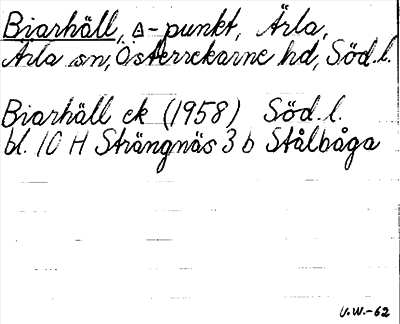 Biarhäll, △-punkt, Ärla,
Ärla sn, Österrekarne hd, Söd.l.
Biarhäll ek (1958) Söd.l.
bl. 10 H Strängnäs 3 b Stålbåga
U.W.-62